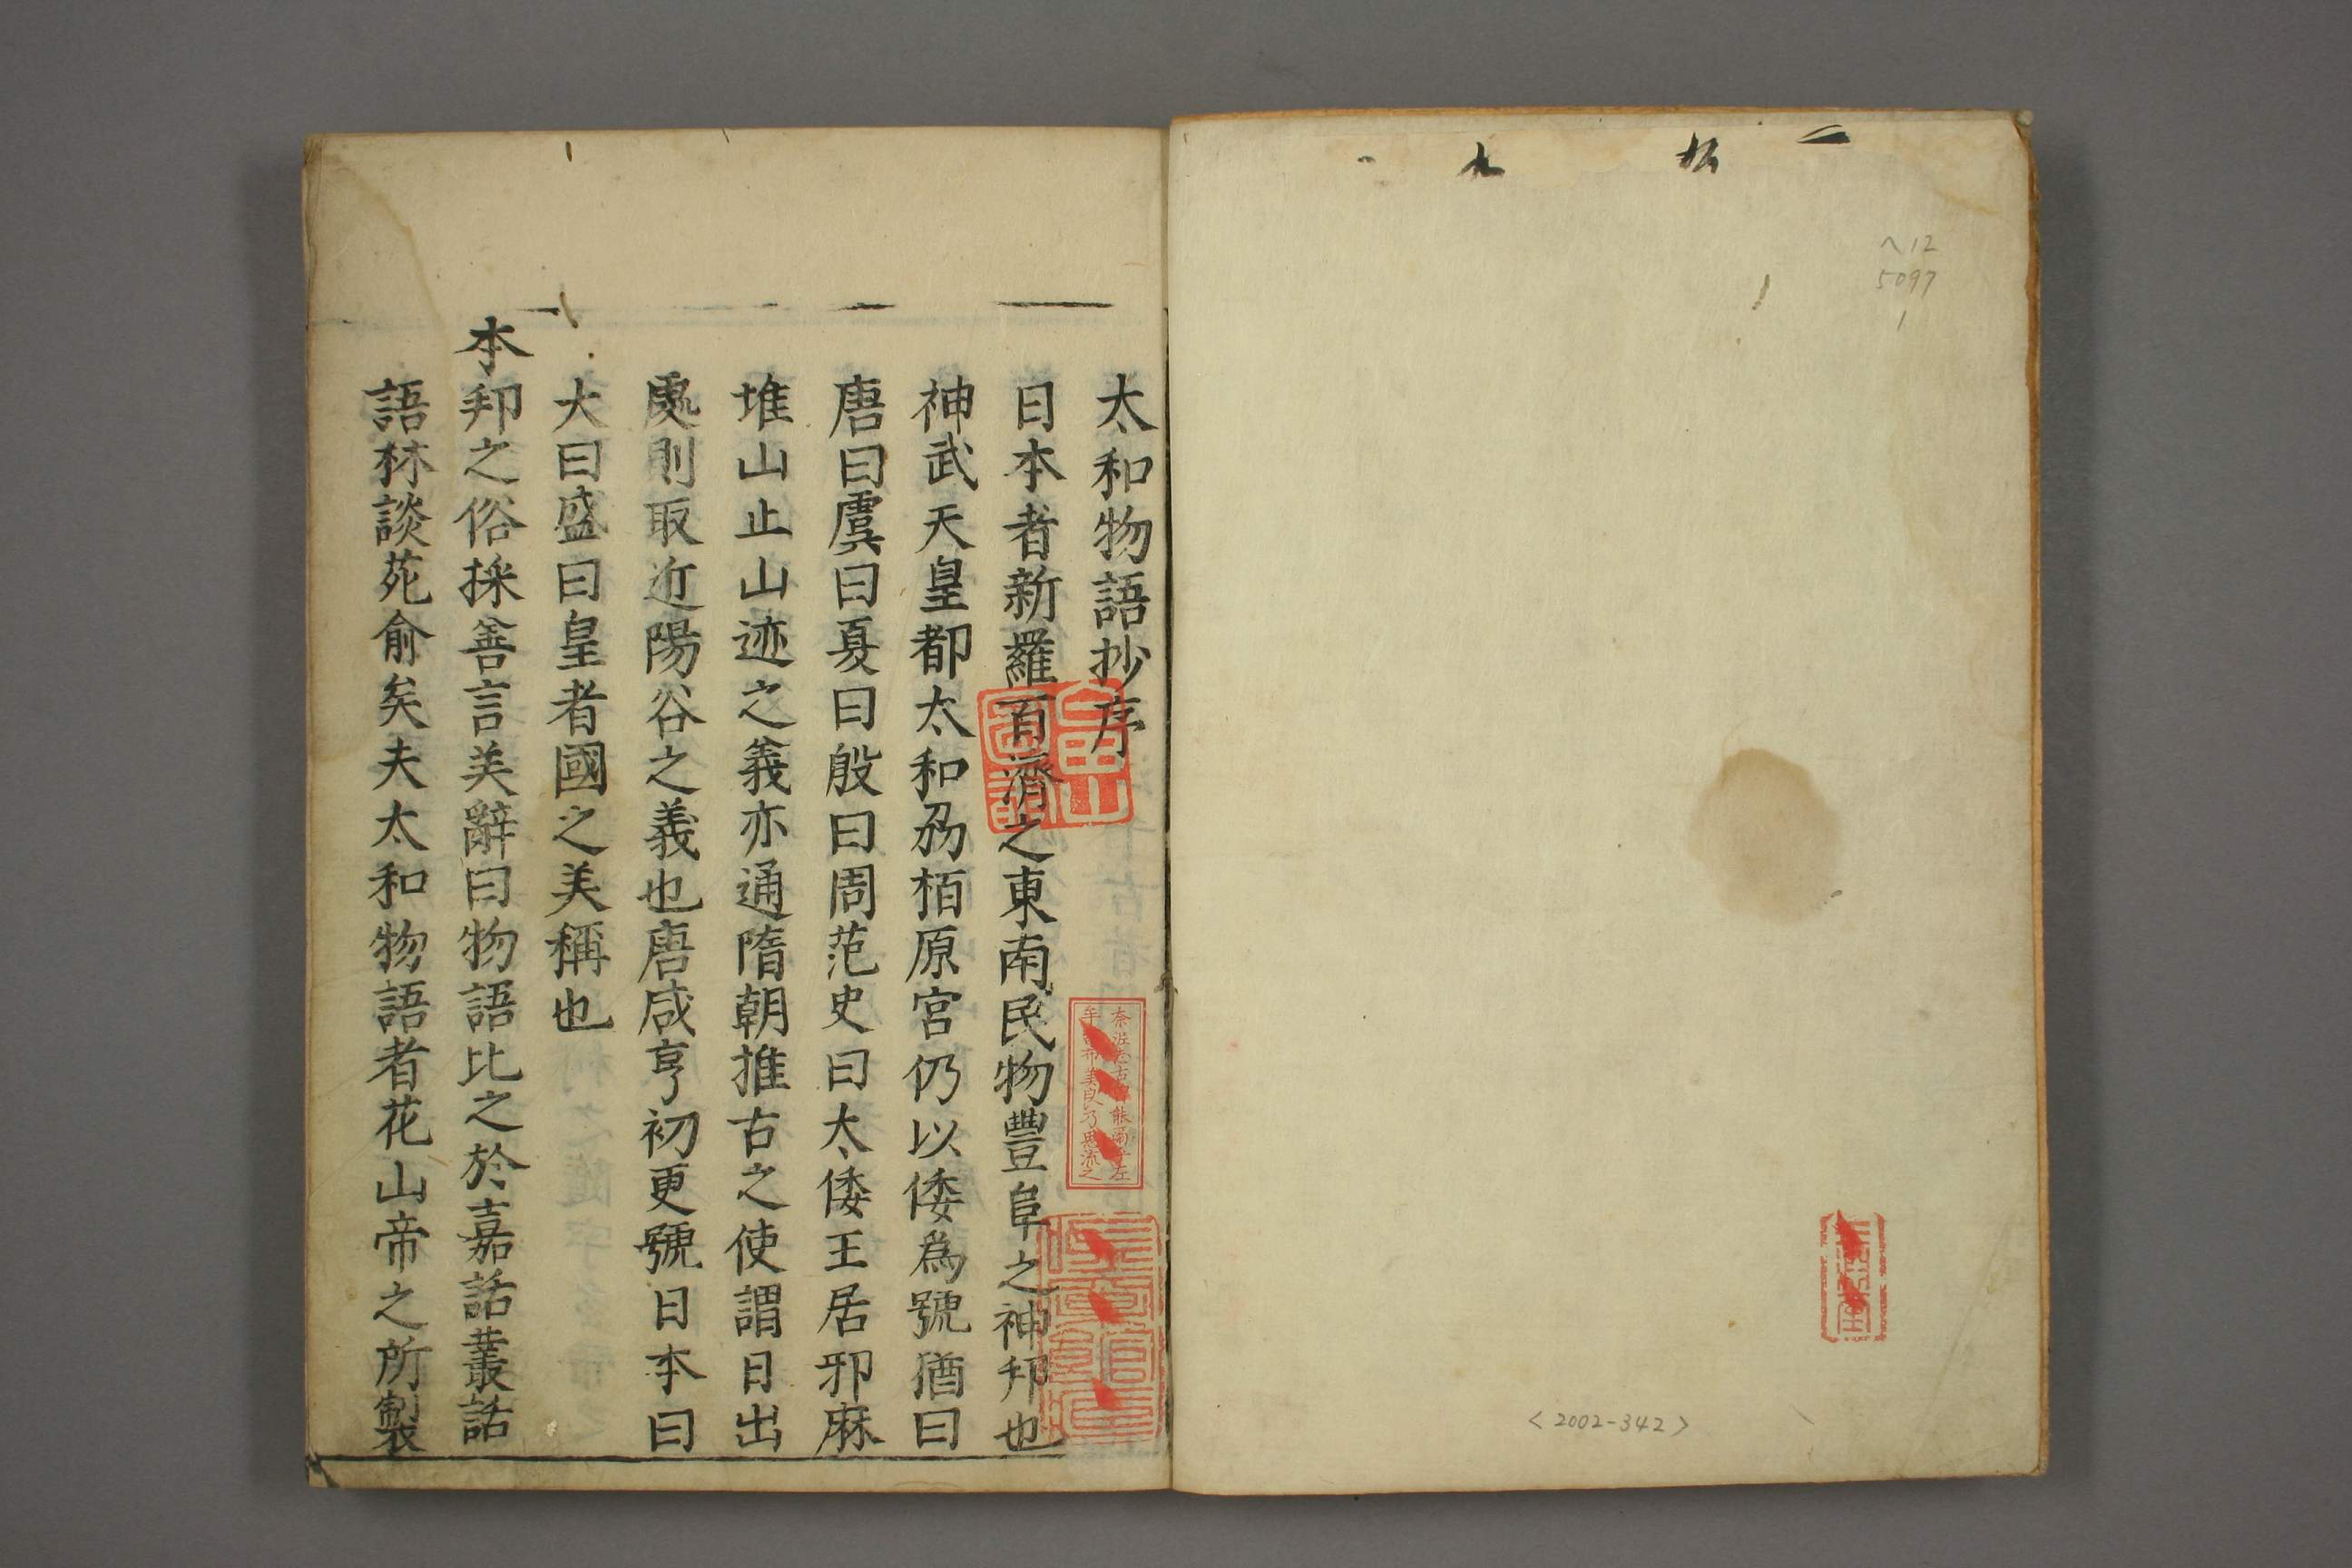 一
松
ヘ12
5097
1
<2002-342>
大和物語抄序
日本者新羅百濟之東南民物豐阜之神邦也
神武天皇都太和刕栢原宮仍以倭爲號猶曰
唐曰虞曰夏曰殷曰周范史曰太倭王居邪麻
堆山止山迹之義亦通隋朝推古之使謂日出
處則取近陽谷之義也唐咸亨初更號日本曰
大曰盛曰皇者國之美稱也
本邦之俗採善言美辭曰物語比之於嘉話叢話
語林談苑俞矣夫太和物語者花山帝之所製